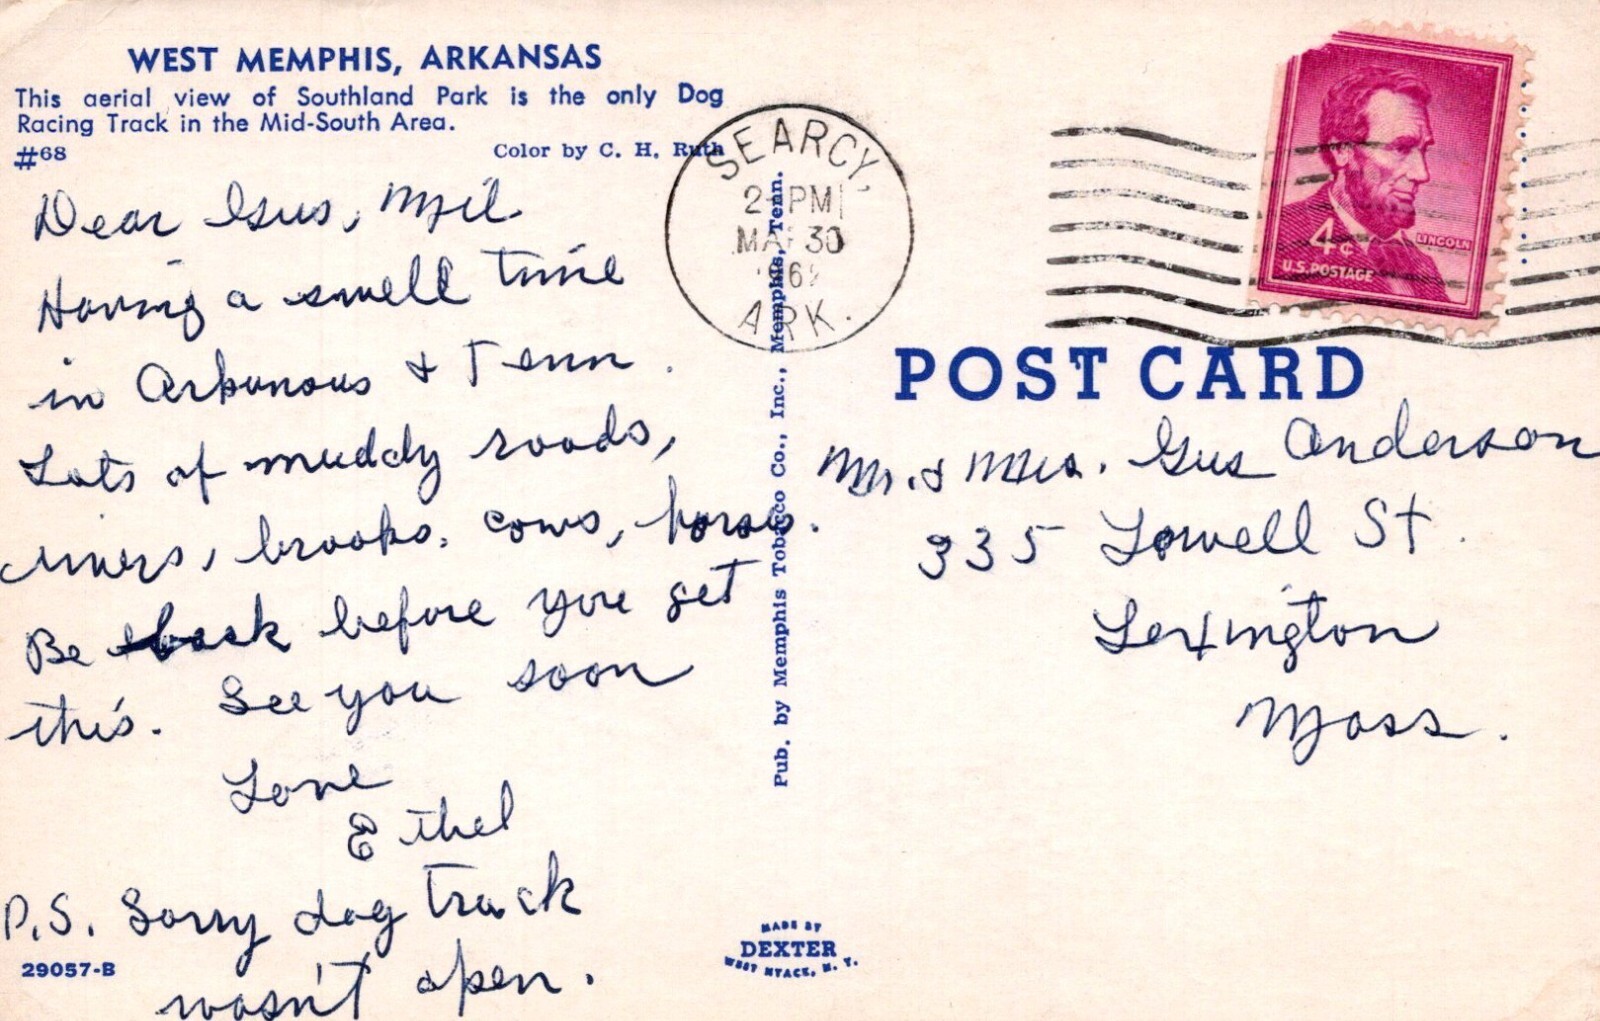 WEST MEMPHIS, ARKANSAS
This aerial view of Southland Park is the only Dog
Racing Track in the Mid-South Area.
#68
Color by C. H. Ruth
Dear Gus, Mil
Having a swell time
in Arkansas & Tenn.
Lots of muddy roads,
rivers, brooks, cows, horses.
Be back before you get
this. See you soon
Love
Ethel
P.S. Sorry dog track
wasn't open.
29057-B
Pub. by Memphis Tobacco Co., Inc., Memphis, Tenn.
MADE BY
DEXTER
WEST NYACK, N. Y.
SEARCY,
PM
30
ARK.
4¢
LINCOLN
U.S. POSTAGE
POST CARD
Mr. & Mrs. Gus Anderson
335 Lowell St.
Lexington
Mass.